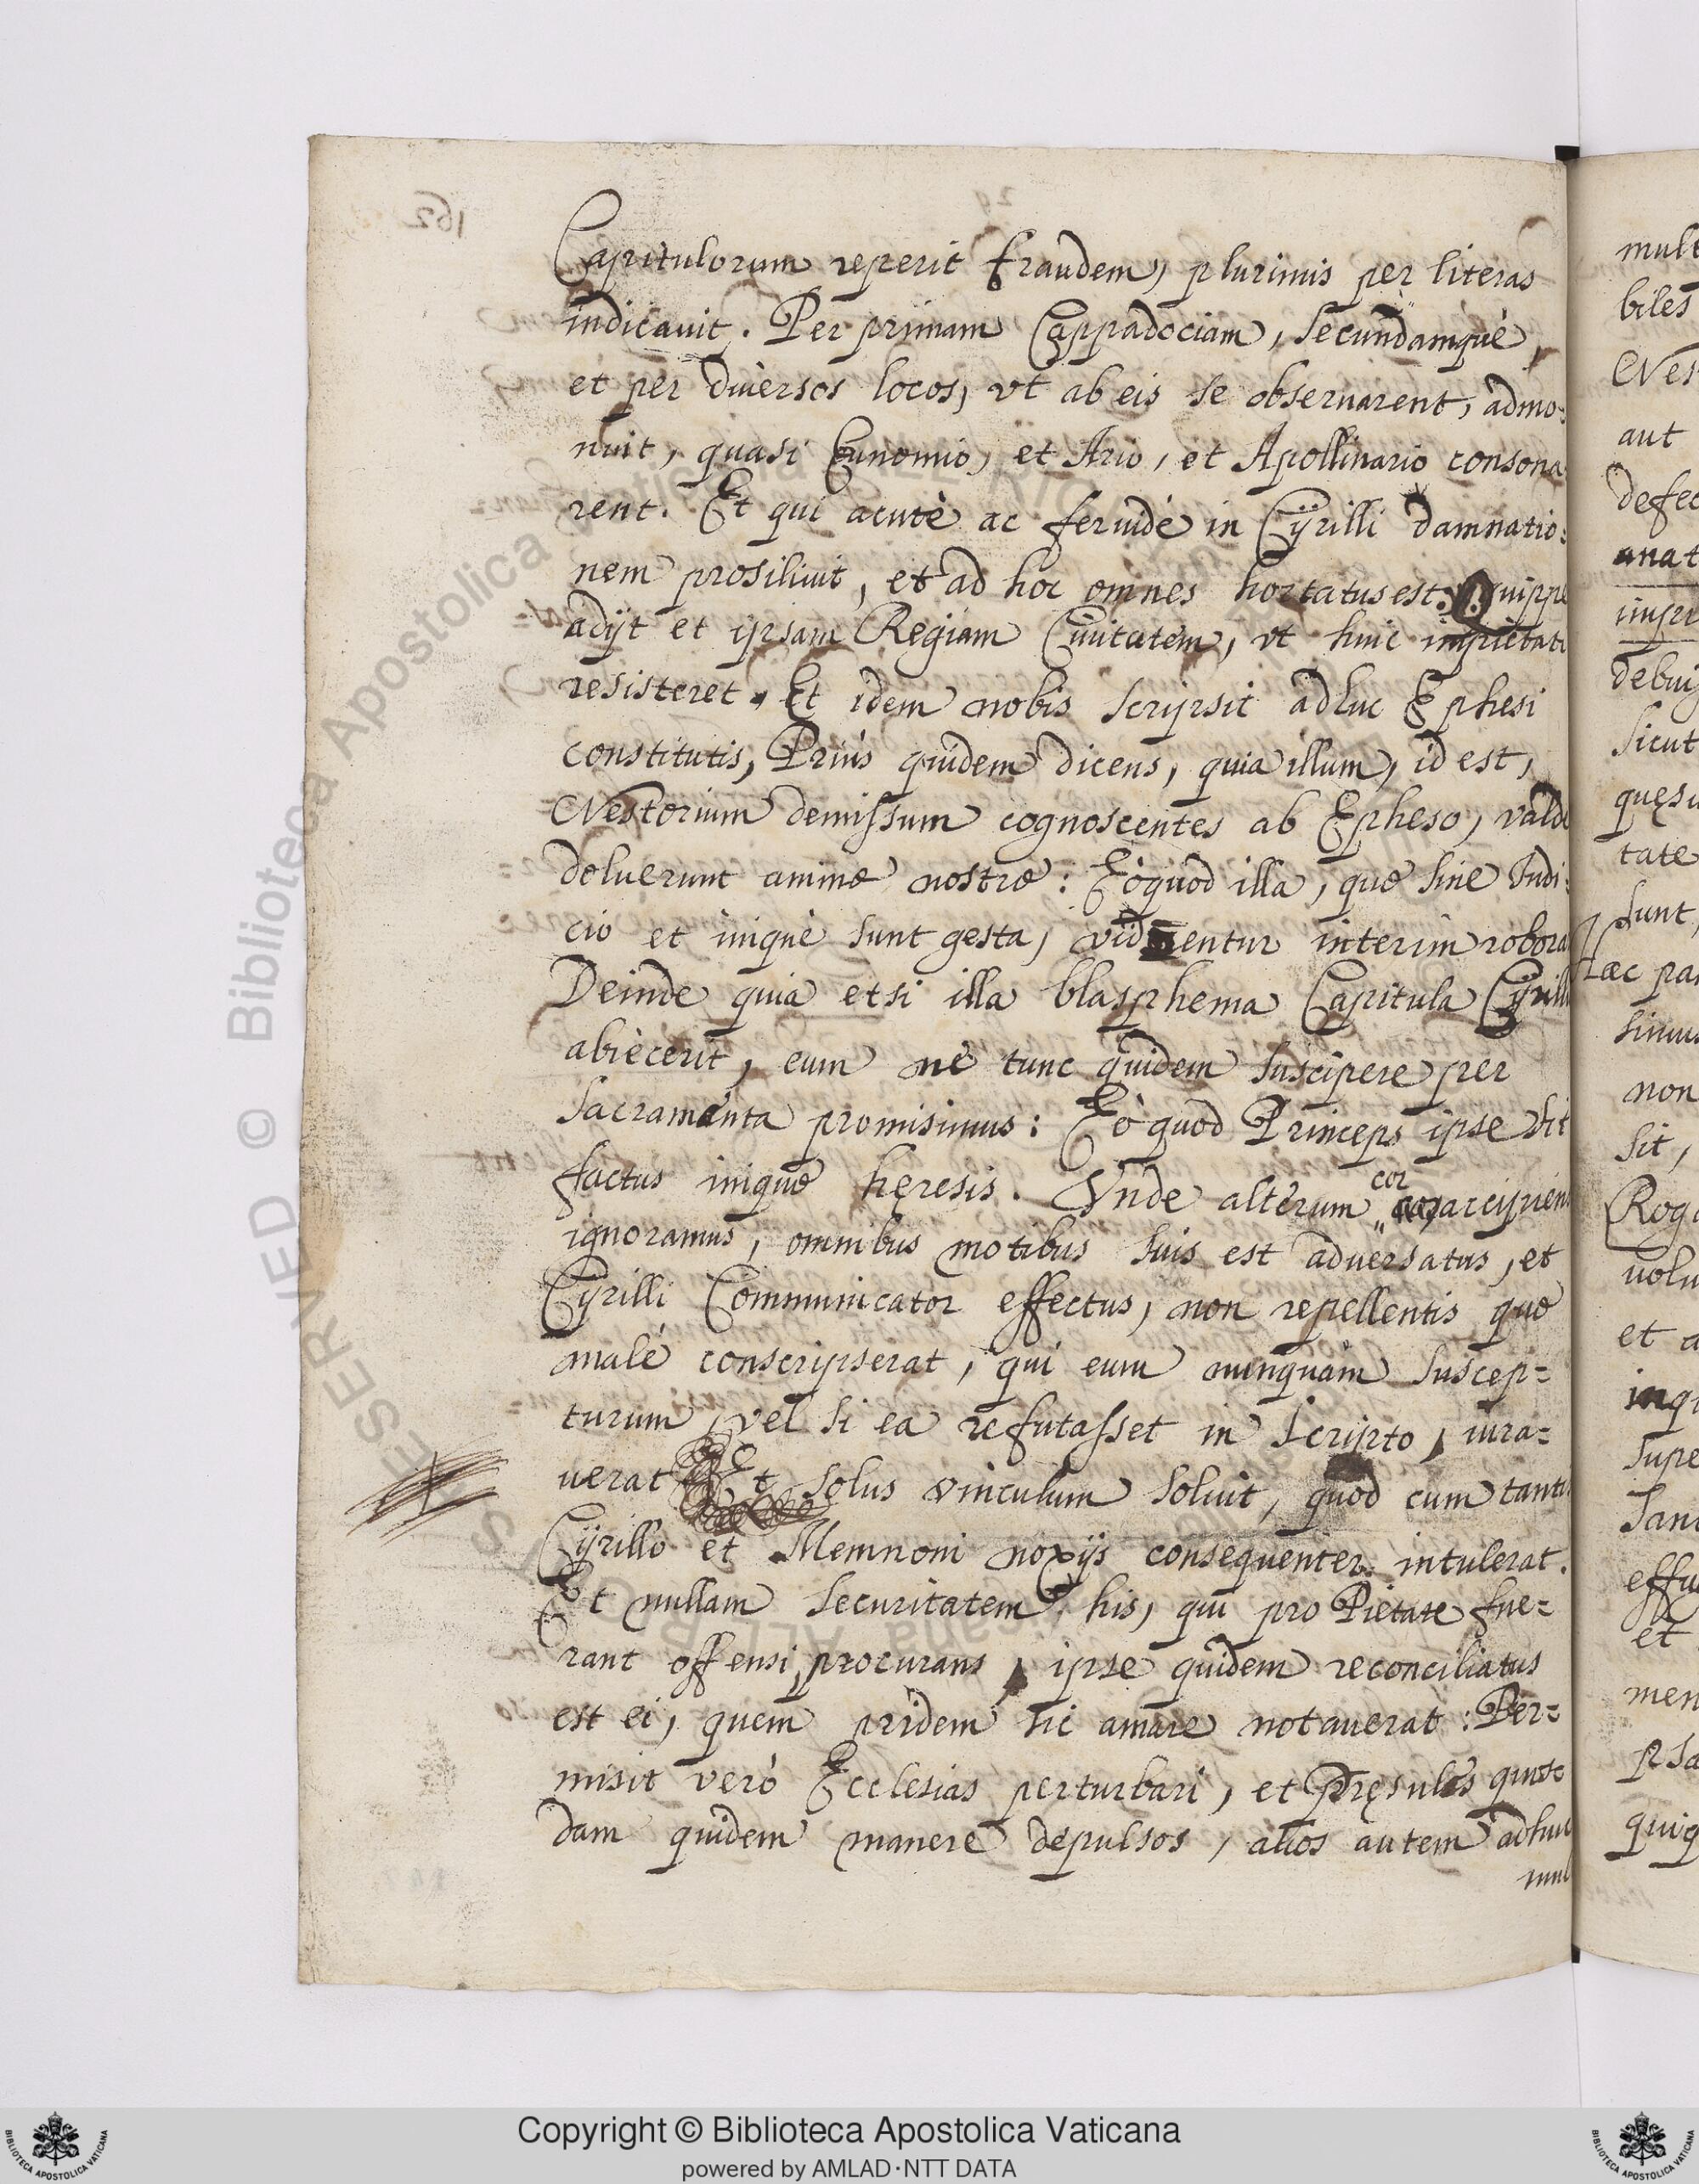 Capitulorum reperit fraudem, plurimis per literas
indicauit. Per primam Cappadociam, secundamquè,
et per diuersos locos, vt ab eis se obseruarent, admo:
nuit, quasi Eunomio, et Ario, et Apollinario consona
rent. Et qui acutè ac feruidè in Cÿrilli damnatio:
nem prosiliuit, et ad hoc omnes hortatus est. Quippe
adijt et ipsam Regiam Ciuitatem, vt huic impietati
resisteret. Et idem nobis scripsit adhuc Ephesi
constitutis, Priùs quidem dicens, quia illum, id est,
Nestorium demissum cognoscentes ab Epheso, valde
doluerunt animæ nostræ: Eòquod illa, quæ sine Iudi:
cio et iniquè sunt gesta, videntur interim robora
Deinde quia etsi illa blasphema Capitula Cÿrill
abiecerit, eum nè tunc quidem suscipere per
sacramenta promisimus: Eò quod Princeps ipse sit
factus iniquæ hęresis. Vnde alterum
cor
ignoramus, omnibus motibus suis est aduersatus, et
Cÿrilli Communicator effectus, non repellentis quæ
malè conscripserat, qui eum nunquam suscep=
turum, vel si ea refutasset in scripto, iura=
uerat Et solus vinculum soluit, quod cum tanti
Cÿrillo et Memnoni noxijs consequenter intulerat.
Et nullam securitatem his, qui pro Pietate fue=
rant offensi, procurans, ipse quidem reconciliatus
est ei, quem pridem sic amarè notauerat: Per=
misit verò Ecclesias perturbari, et Pręsules
dam quidem manere depulsos, alios autem adhuc
mul
162
29
mult
biles
Nes
aut
defec
anat
impi
debui
sicut
quęsu
tate
sunt,
hæc par
simus
non
sit,
Rog
uolu
et a
inqu
supe
Sanc
effu
et
men
psa
quiq
© Biblioteca Apostolica Vaticana
Copyright © Biblioteca Apostolica Vaticana
powered by AMLAD·NTT DATA
BIBLIOTECA APOSTOLICA VATICANA
BIBLIOTECA APOSTOLICA VATICANA